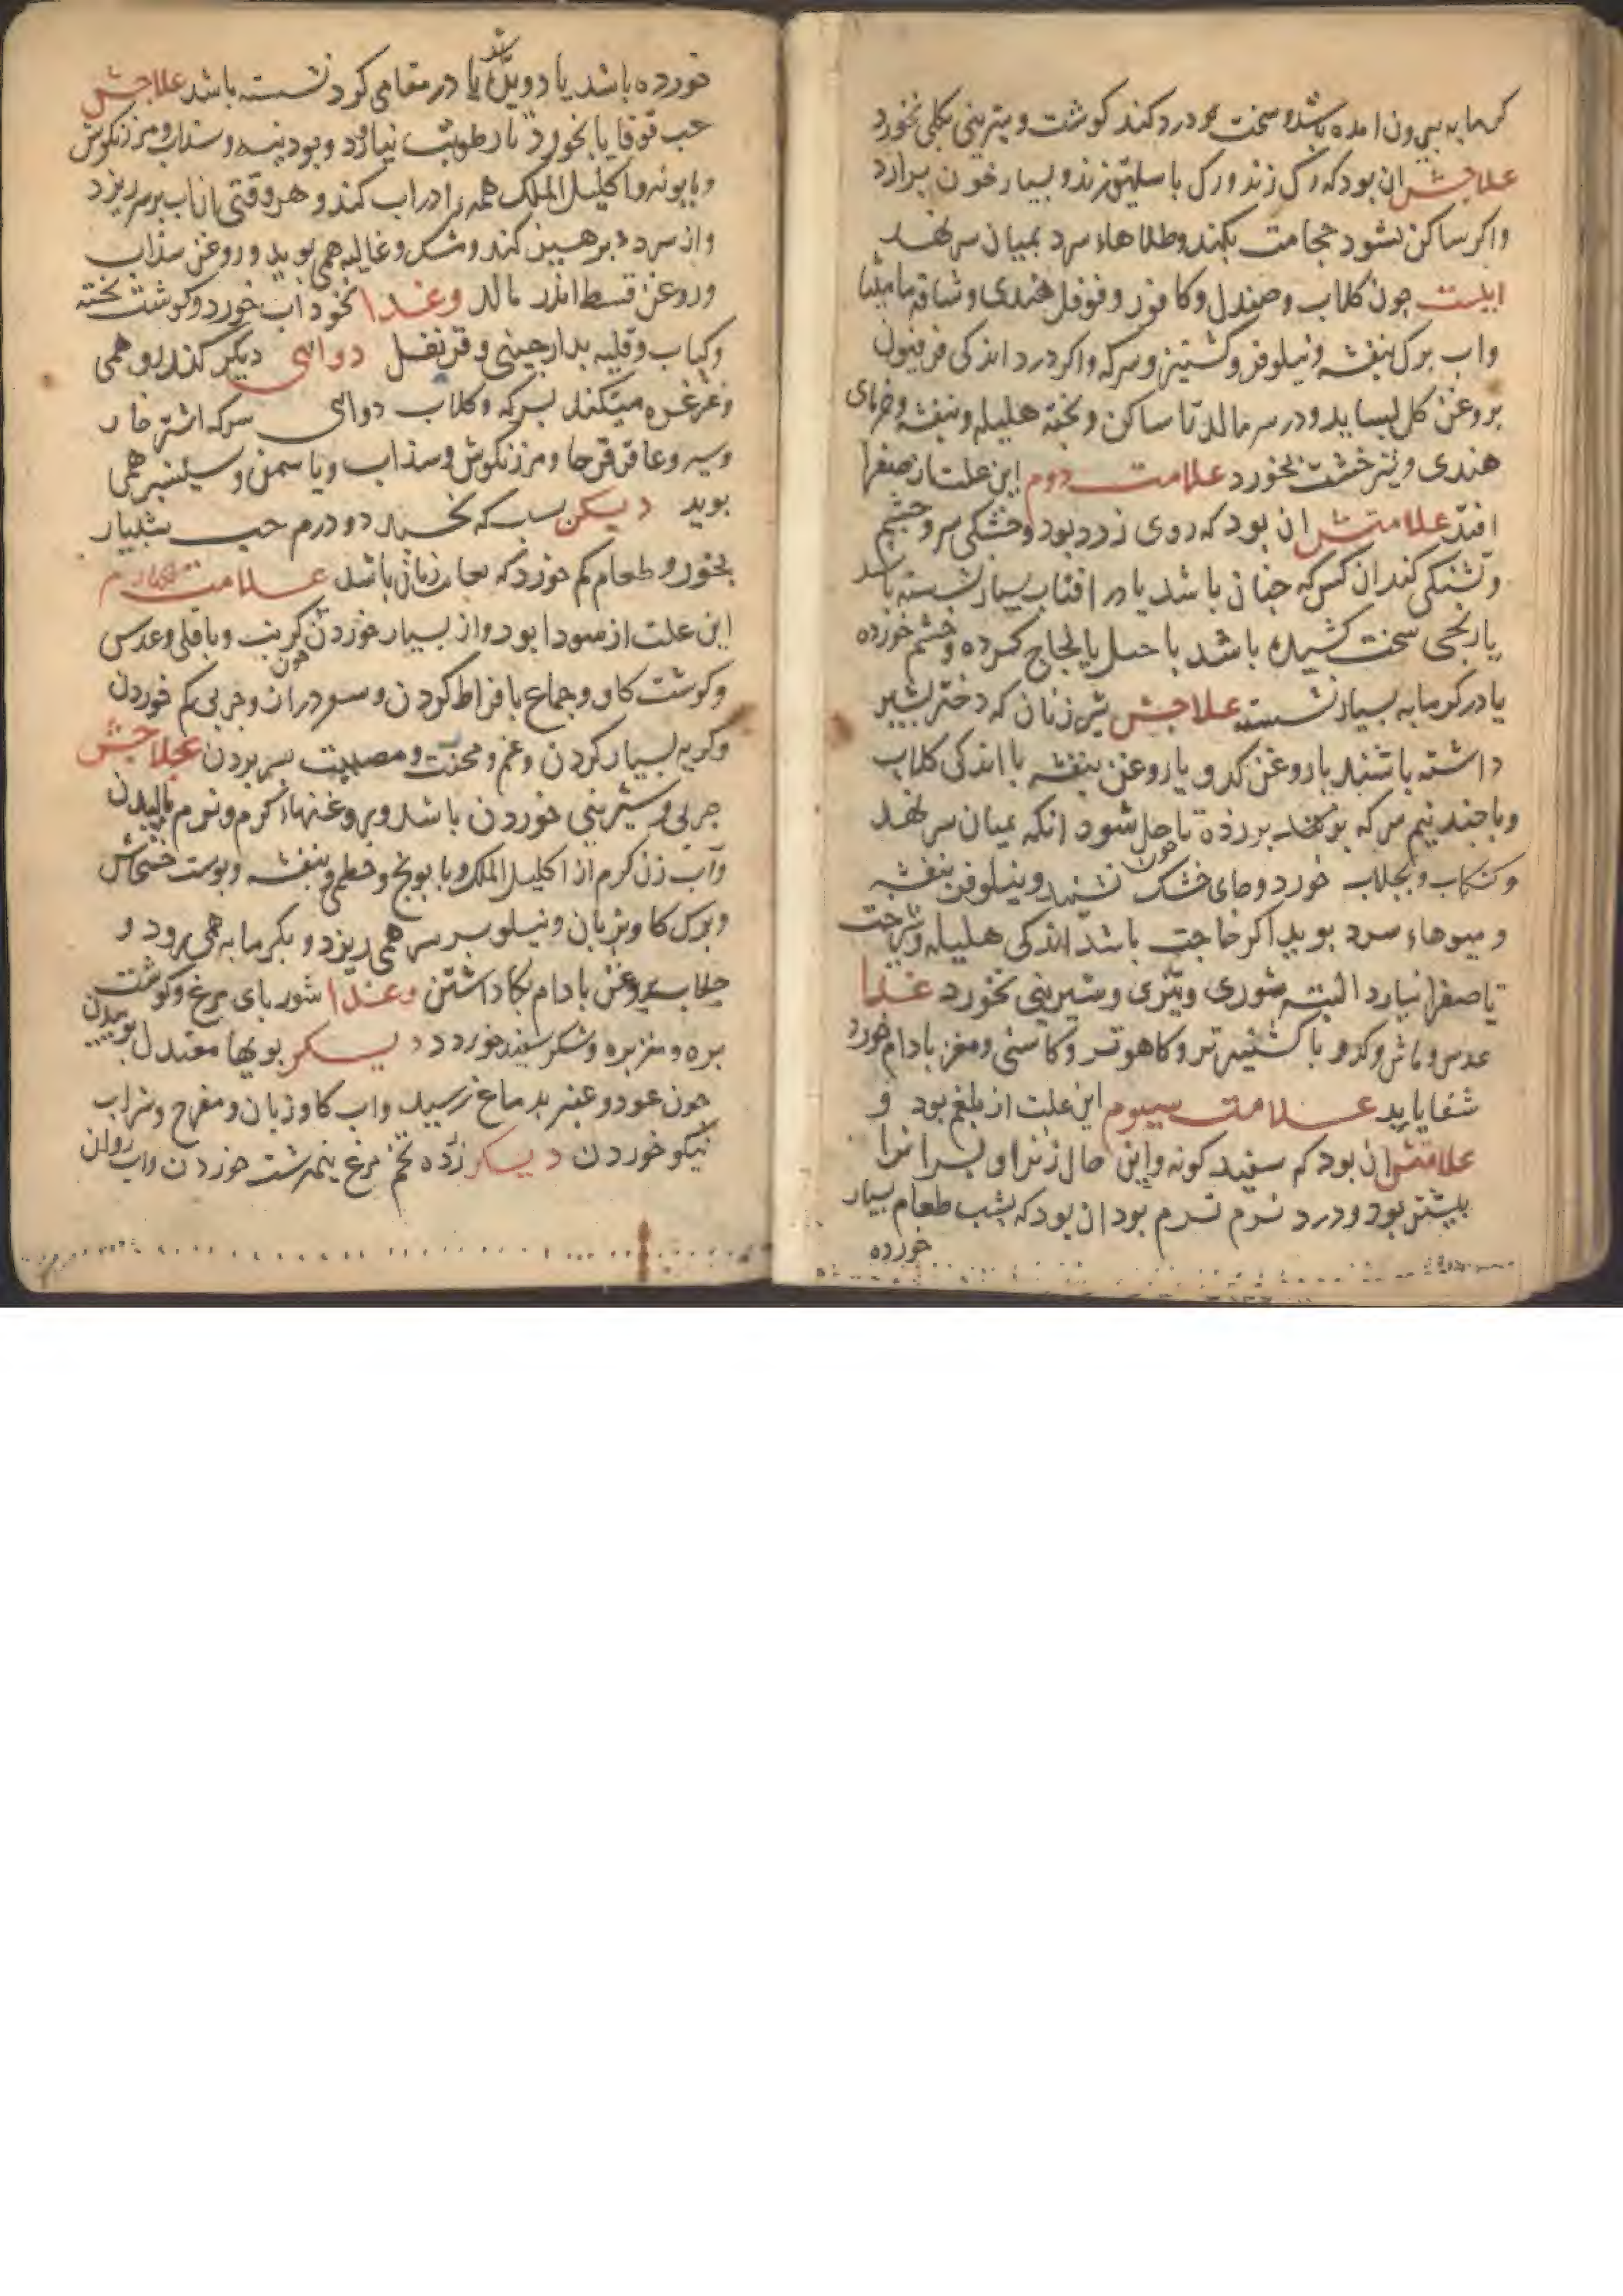 کرمابه بیرون امده باشد و سخت درد کند کوشت و شیرینی بکلی نخورد
علاجش ان بود که رک زند و رک باسلیق زند و بسیار خون برارد
واکر ساکن نشود حجامت بکند و طلاهاء سرد بمیان سر نهد
اینست جون کلاب و صندل و کافور و فوفل هندی و شیافه مامیثا
واب برک بنفشه و نیلوفر و کشنیز و سرکه واکر درد اندکی فرفیون
بروغن کل بساید و در سر مالد تا ساکن و بخته هلیله و بنفشه و خرمای
هندی و شیرخشت بخورد علامت دوم این علت از صفرا
افتد علامتش ان بود که روی زرد بود و خشکی سر و جشم
و تشنکی کند ان کس که جنان باشد یا در افتاب بسیار نشسته باشد
یا رنجی سخت کشیده باشد یا لجاج کرده و خشم خورده
یا در کرمابه بسیار نشسته علاجش شیر زنان که دختر بشیر
داشته باشند با روغن کدو یا روغن بنفشه با اندکی کلاب
و با جند نیم سرکه تا حل شود انکه بمیان سر نهد
و کشکاب و بجلاب خورد و جای خشک نشیند و نیلوفر بنفشه
و میوهاء سرد بوید اکر حاجت باشد اندکی هلیله
تا صفرا نیارد البته شوری و تیزی و شیرینی نخورد غذا
عدس و ماش و کدو با کشنیز تر و کاهو تر و کاسنی و مغز بادام خورد
شفا یابد علامت سیوم این علت از بلغم بود و
علامتش ان بود که سفید کونه و این حال زنرا و بسرانرا
بیشتر بود و درد نرم نرم بود ان بود که بشب طعام بسیار
خورده
خورده باشد یا در مقامی کرد نشسته باشد علاجش
حب قوقایا بخورد تا رطوبت نیاورد و بودینه و سداب و مرزنکوش
و بابونه و اکلیل الملک همه را در اب کند و هر وقتی از ان اب بر سر ریزد
و از سرد برهیز کند و مشک و غالیه همی بوید و روغن سذاب
و روغن قسط اندر مالد و غذا نخود اب خورد و کوشت بخته
و کباب و قلیه بدارجینی و قرنفل دوائی دیکر همی
و غرغره میکند بسرکه و کلاب دوائی سرکه اشترخار
و سیر و عاقرقرحا و مرزنکوش و سذاب و یاسمن و سیسنبر همی
بوید دیکر شب که بخسبد دو درم حب شبیار
بخورد و طعام کم خورد علامت چهارم
این علت از سودا بود و از بسیار خوردن جون کرنب و باقلی و عدس
و کوشت کاو و جماع بافراط کردن و جربی کم خوردن
و کریه بسیار کردن و غم و محنت و مصیبت بسر بردن علاجش
جربی و شیرینی خوردن باشد و بروغنهاء کرم و نرم مالیدن
و آب زن کرم از اکلیل الملک و بابونج و خطمی و بنفشه و بوست خشخاش
و برک کاوزبان و نیلوبر بر سر همی ریزد و بکرمابه همی رود و
جلاب بروغن بادام بکار داشتن و غذا شوربای مرغ و کوشت
بره و مغز بره و شکر سفید خورد دیکر بویها معتدل بوییدن
جون عود و عنبر بدماغ رسید واب کاوزبان و مفرح و شراب
نیکو خوردن دیکر زرده تخم مرغ نیمبرشت خوردن واب روان